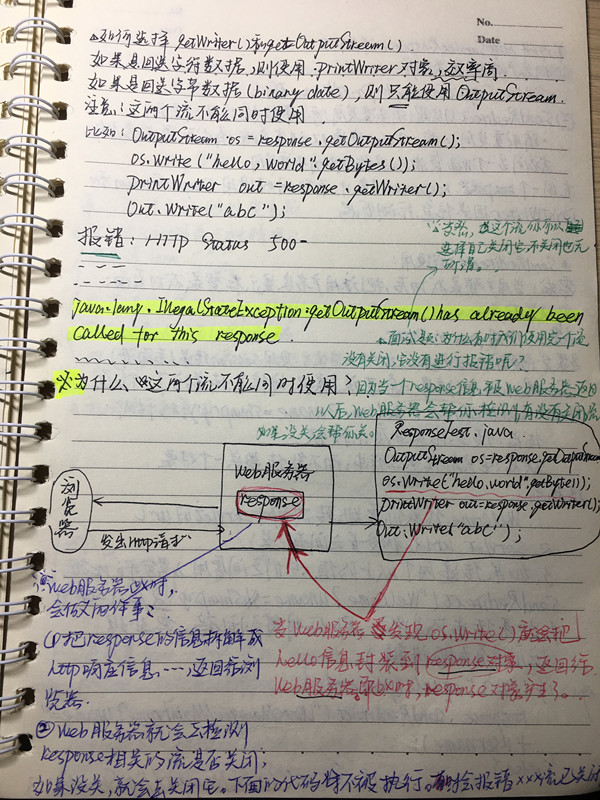 No.
Date
△如何选择getWriter()和getOutputStream()
如果是回送字符数据,则使用printWriter对象,效率高
如果是回送字节数据(binary date),则只能使用OutputStream
注意:这两个流不能同时使用
比如:OutputStream os=response.getOutputStream();
os.write("hello,world".getBytes());
printWriter out=response.getWriter();
Out.write("abc");
报错:HTTP Status 500-
选择自己关闭它,不关闭也无
所谓。
java.lang.IllegalStateException:getOutputStream() has already been
called for this response
面试题:为什么有时我们使用完个流
没有关闭,它没有进行报错呢?
※为什么这两个流不能同时使用?
因为当一个response信息被web服务器返回
以后,web服务器会帮你检查有没有关闭流
如果没关会帮你关。
ResponseTest.java
OutputStream os=response.getOutputStream
os.write("hello,world".getBytes());
printWriter out=response.getWriter();
Out.write("abc");
web服务器
response
浏览器
发出http请求
web服务器此时,
会做两件事:
①把response的信息拆解成
http响应信息……返回给浏
览器
②web服务器就会去检测
response相关的流是否关闭;
如果没关,就会去关闭它。下面的代码将不被执行。
会报错xxx流已关闭
当web服务器发现os.write()就会把
hello信息封装到response对象,返回给
web服务器。即此时,response对象